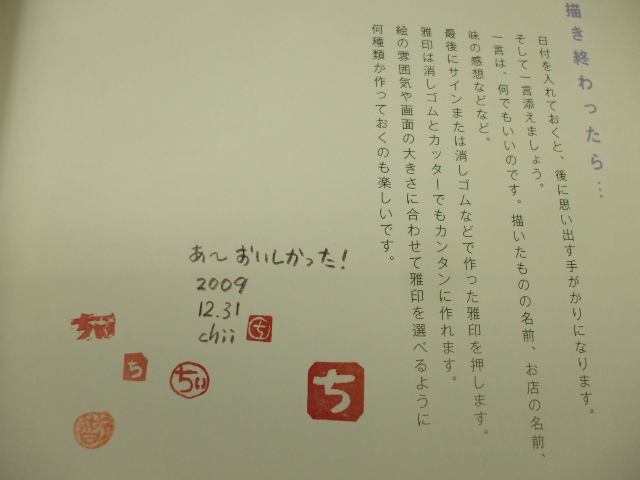 描き終わったら…
日付を入れておくと、後に思い出す手がかりになります。
そして一言添えましょう。
一言は、何でもいいのです。描いたものの名前、お店の名前、
味の感想などなど。
最後にサインまたは消しゴムなどで作った雅印を押します。
雅印は消しゴムとカッターでもカンタンに作れます。
絵の雰囲気や画面の大きさに合わせて雅印を選べるように
何種類か作っておくのも楽しいです。
あ〜おいしかった!
2009
12.31
chii
ち
ち
ちい
ち